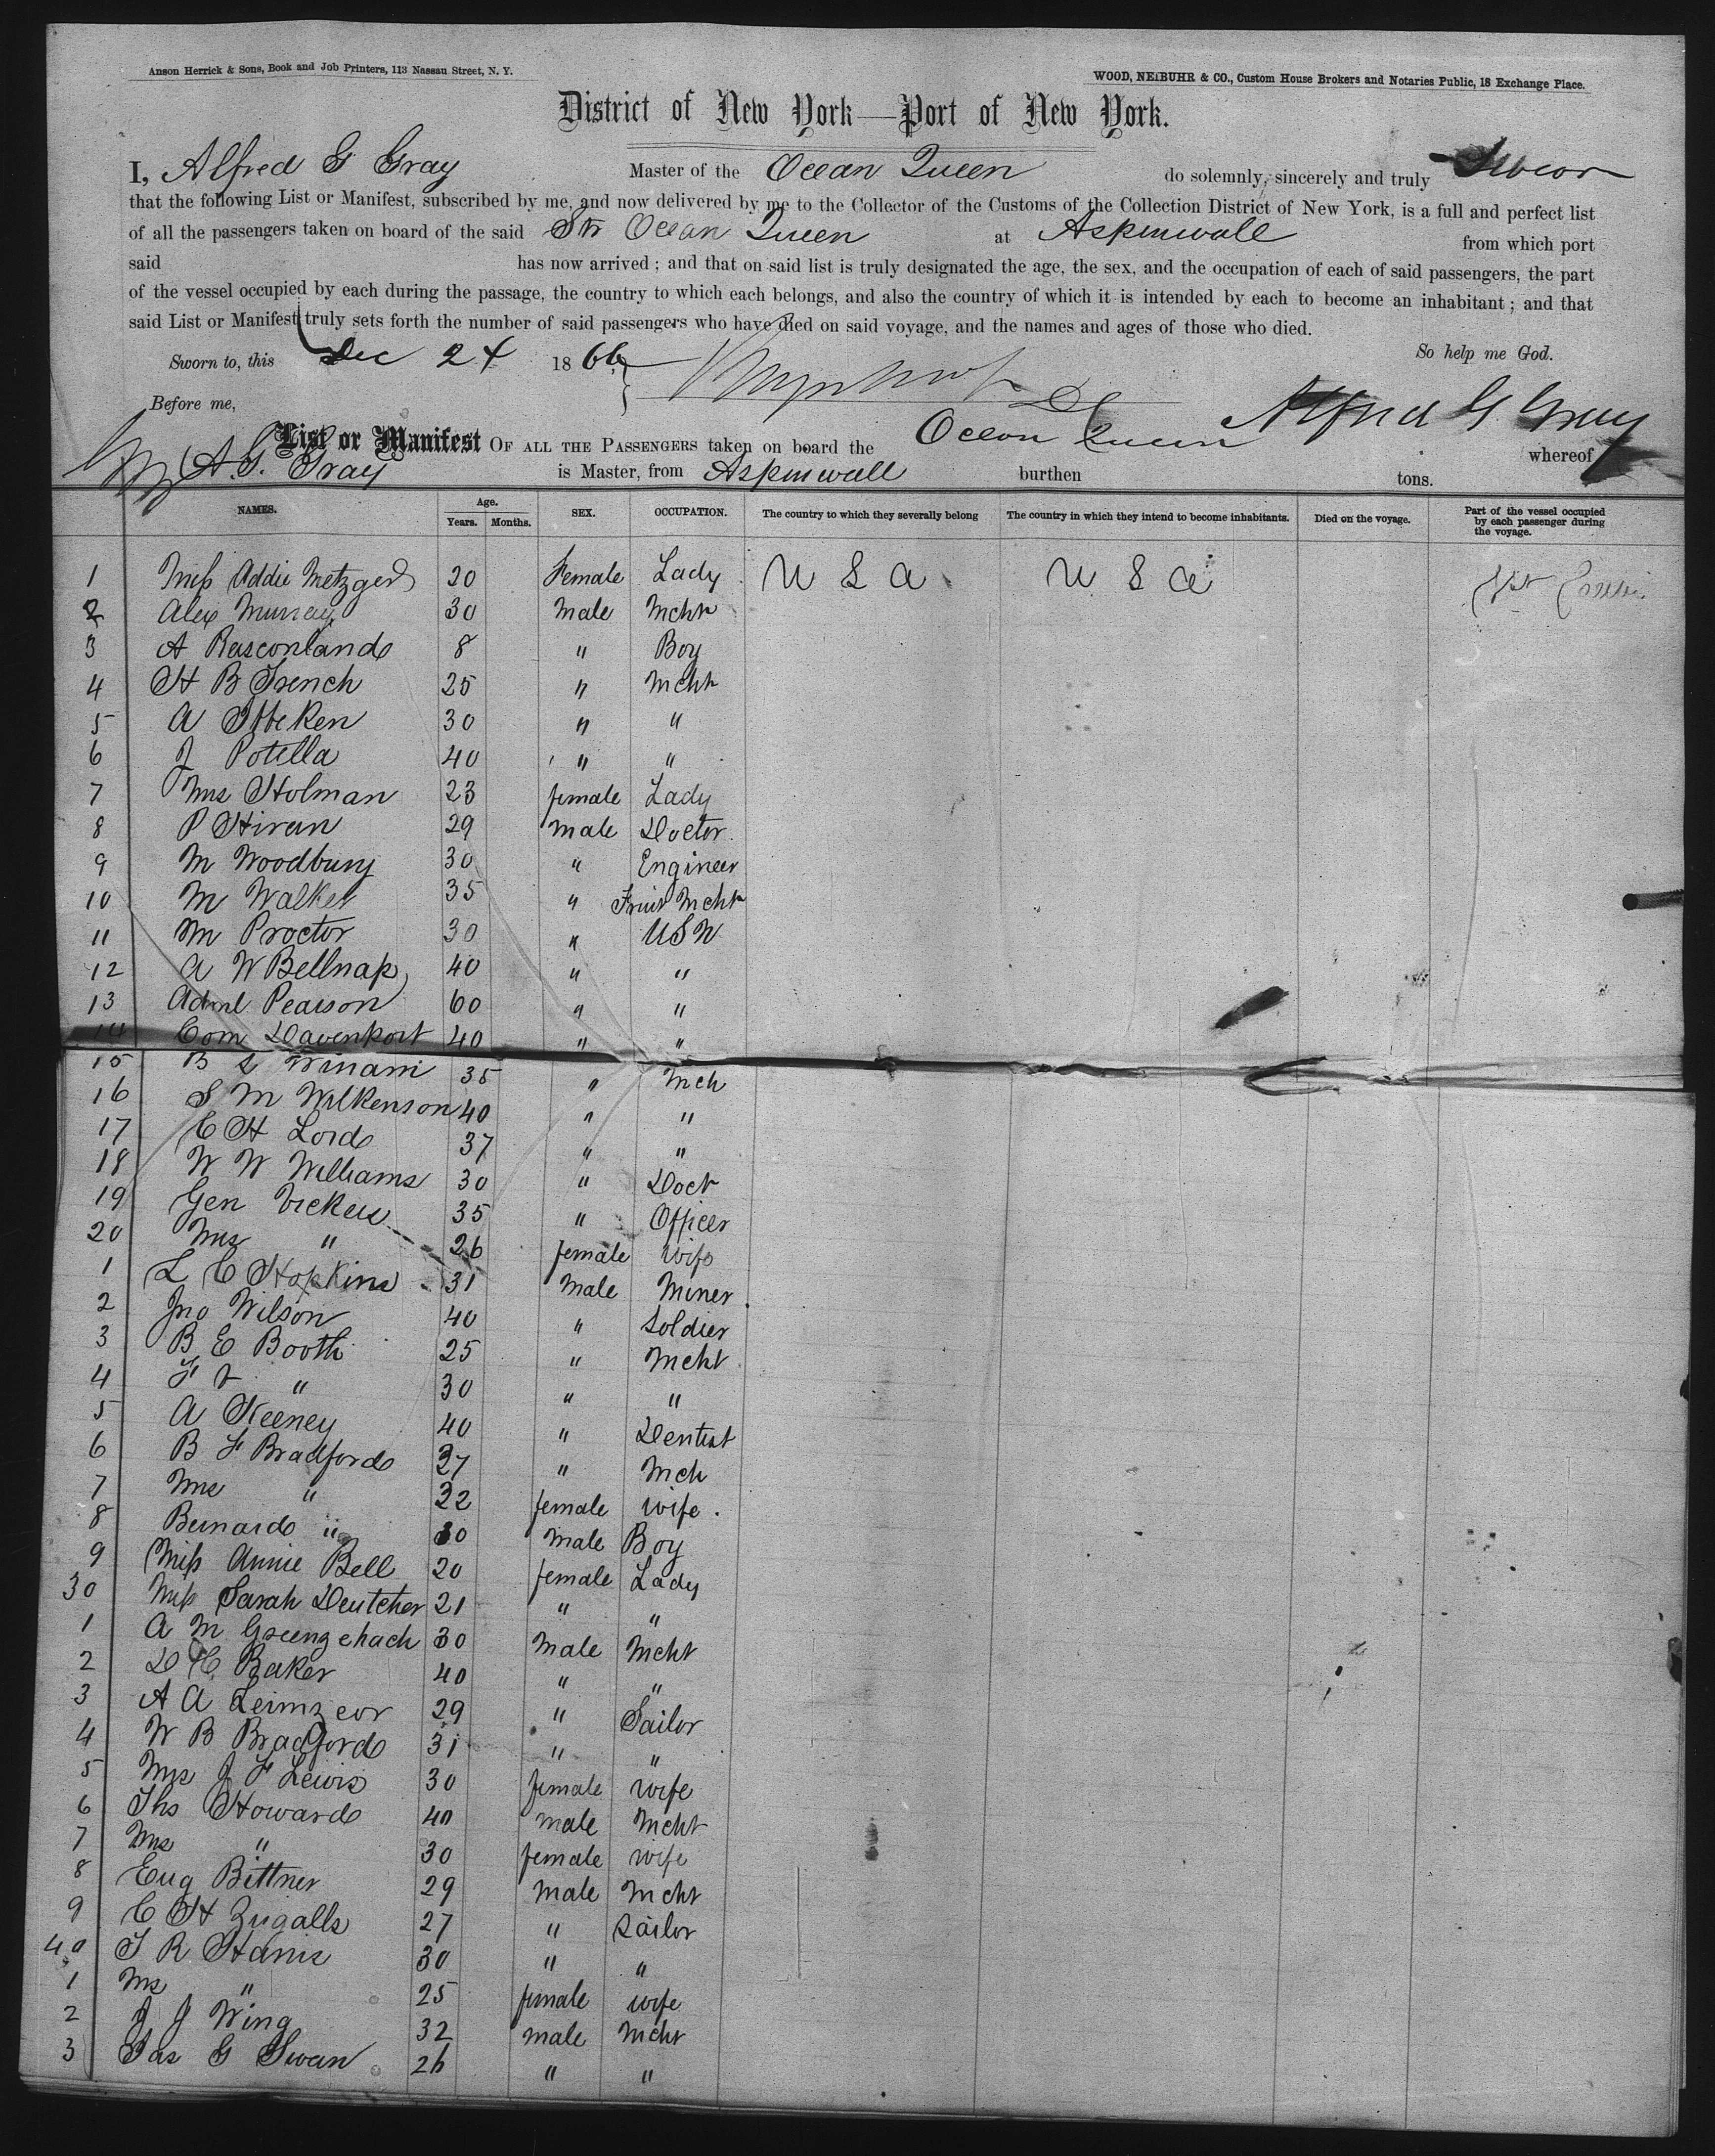 Anson Herrick & Sons, Book and Job Printers, 113 Nassau Street, N. Y.
WOOD, NEIBUHR & CO., Custom House Brokers and Notaries Public, 18 Exchange Place.
District of New York—Port of New York.
I, Alfred G Gray Master of the Ocean Queen do solemnly, sincerely and truly Swear
that the following List or Manifest, subscribed by me, and now delivered by me to the Collector of the Customs of the Collection District of New York, is a full and perfect list
of all the passengers taken on board of the said Str Ocean Queen at Aspinwall from which port
said has now arrived; and that on said list is truly designated the age, the sex, and the occupation of each of said passengers, the part
of the vessel occupied by each during the passage, the country to which each belongs, and also the country of which it is intended by each to become an inhabitant; and that
said List or Manifest truly sets forth the number of said passengers who have died on said voyage, and the names and ages of those who died.
So help me God.
Sworn to, this Dec 24 1866
Before me,
Alfred G. Gray
List or Manifest OF ALL THE PASSENGERS taken on board the Ocean Queen whereof
A. G. Gray is Master, from Aspinwall burthen tons.
NAMES. Age. Years. Months. SEX. OCCUPATION. The country to which they severally belong The country in which they intend to become inhabitants. Died on the voyage. Part of the vessel occupied by each passenger during the voyage.
1 Miss Addie Metzger 20 Female Lady U S A U S A 1st Cabin
2 Alex Murray 30 male Mcht
3 A 8 " Boy
4 H B French 25 " Mcht
5 A 30 " "
6 J Potella 40 " "
7 Mrs Holman 23 female Lady
8 P Hiran 29 male Doctor
9 M Woodbury 30 " Engineer
10 M Walker 35 " Fruit Mcht
11 M Proctor 30 " USN
12 A W Bellnap 40 " "
13 Adml Pearson 60 " "
14 Com Davenport 40 " "
15 B L Winam 35 " Mch
16 S M Wilkenson 40 " "
17 C H Lord 37 " "
18 W W Williams 30 " Doct
19 Gen Vickers 35 " Officer
20 Mrs " 26 female wife
1 L C Hopkins 31 male Miner
2 Jno Wilson 40 " Soldier
3 B E Booth 25 " Mcht
4 F " 30 " "
5 A Keeney 40 " Dentist
6 B F Bradford 37 " Mch
7 Mrs " 32 female wife
8 Bernard " male Boy
9 Miss Annie Bell 20 female Lady
30 Miss Sarah Deutcher 21 " "
1 A M 30 male Mcht
2 D C Baker 40 " "
3 A A 29 " Sailor
4 W B Bradford 31 " "
5 Mrs J F Lewis 30 female wife
6 Ths Howard 40 male Mcht
7 Mrs " 30 female wife
8 Eug Bittner 29 male Mcht
9 C H 27 " Sailor
40 T R Harris 30 " "
1 Mrs " 25 female wife
2 J J Wing 32 male Mcht
3 Jas G Swan 26 " "